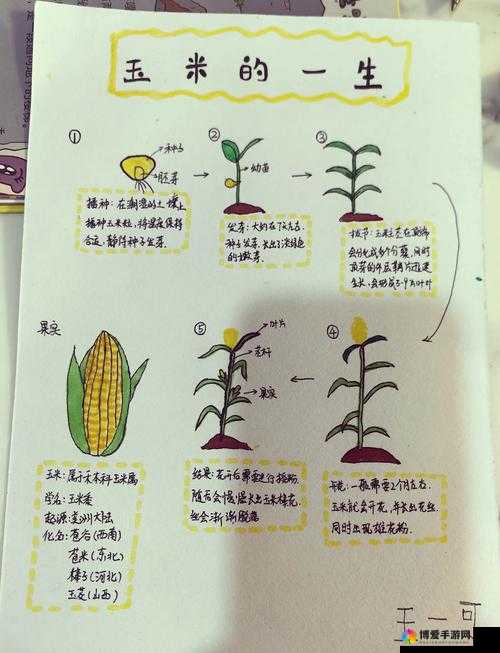 玉米的一生
①
种子
胚芽
播种：在潮湿的土壤上
播种玉米粒，将温度保持
合适，静待种子发芽。
②
幼苗
发芽：大约在7天左右，
种子发芽，长出了淡绿色
的嫩芽。
③
拔节：玉米主茎在顶端
会分化成多个分蘖，同时
生长，会形成5-9片叶片
④
一般需要2个月左右，
玉米就会开花，并长出花丝，
同时出现雄花粉。
⑤
叶片
茎秆
果实
结果：花开后需要进行授粉，
随后会慢慢长出玉米棒花，
也会渐渐脱落
果实
玉米：属于禾本科玉蜀属
学名：玉米黍
起源：美洲大陆
化名：苞谷（西南）
苞米（东北）
棒子（河北）
玉茭（山西）
王一可
博爱手游网